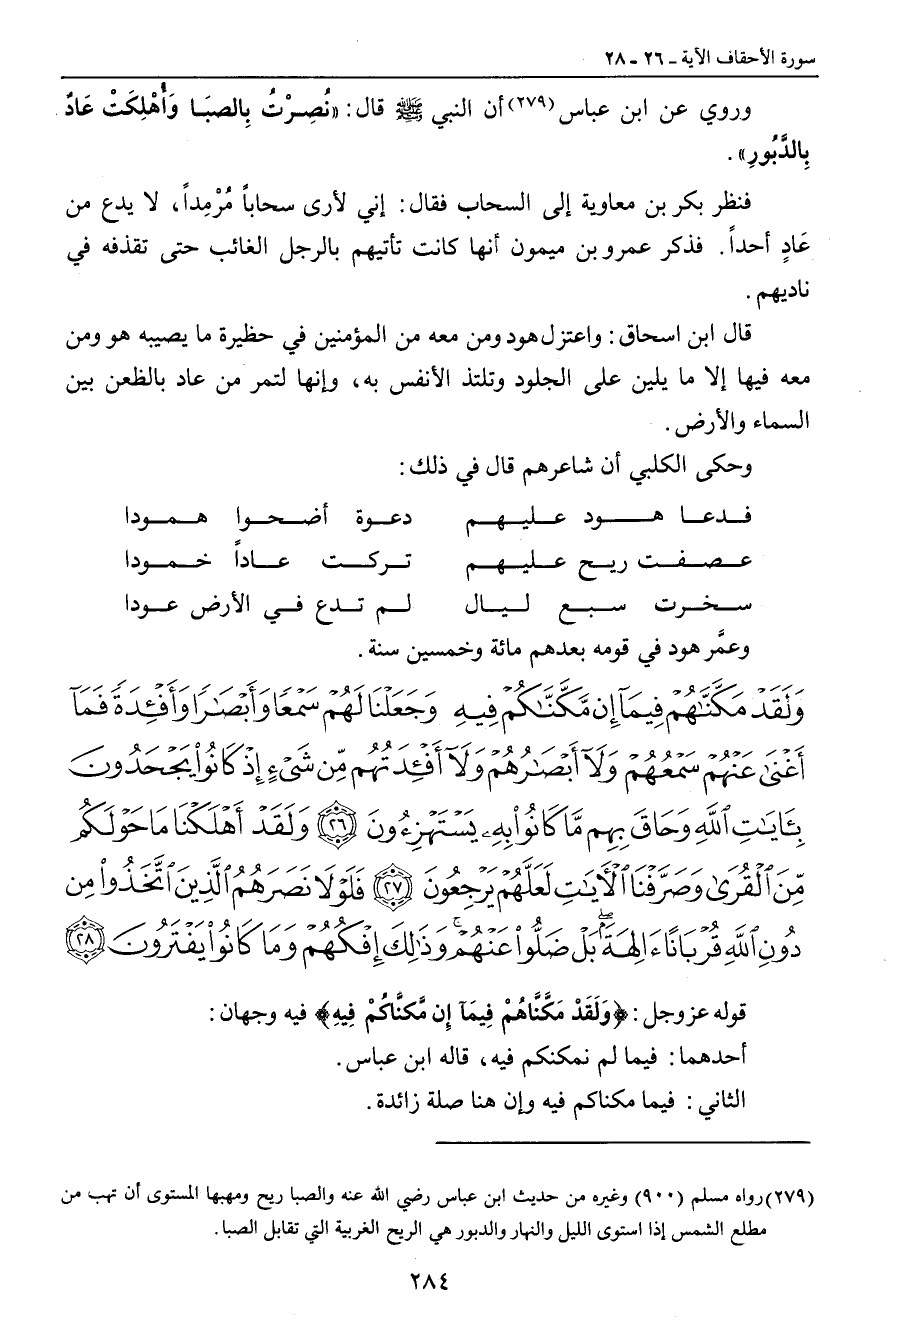 سورة الأحقاف الآية ـ ٢٦ ـ ٢٨
وروي عن ابن عباس (٢٧٩) أن النبي ﷺ قال: «نُصِرْتُ بِالصبَا وَأُهْلِكَتْ عَادٌ
بِالدَّبُورِ».
فنظر بكر بن معاوية إلى السحاب فقال: إني لأرى سحاباً مُرْمِداً، لا يدع من
عَادٍ أحداً. فذكر عمرو بن ميمون أنها كانت تأتيهم بالرجل الغائب حتى تقذفه في
ناديهم.
قال ابن اسحاق: واعتزل هود ومن معه من المؤمنين في حظيرة ما يصيبه هو ومن
معه فيها إلا ما يلين على الجلود وتلتذ الأنفس به، وإنها لتمر من عاد بالظعن بين
السماء والأرض.
وحكى الكلبي أن شاعرهم قال في ذلك:
فدعا هود عليهم دعوة أضحوا همودا
عصفت ريح عليهم تركت عاداً خمودا
سخرت سبع ليال لم تدع في الأرض عودا
وعمَّر هود في قومه بعدهم مائة وخمسين سنة.
وَلَقَدْ مَكَّنَّٰهُمْ فِيمَآ إِن مَّكَّنَّٰكُمْ فِيهِ وَجَعَلْنَا لَهُمْ سَمْعًا وَأَبْصَٰرًا وَأَفْـِٔدَةً فَمَآ
أَغْنَىٰ عَنْهُمْ سَمْعُهُمْ وَلَآ أَبْصَٰرُهُمْ وَلَآ أَفْـِٔدَتُهُم مِّن شَىْءٍ إِذْ كَانُوا۟ يَجْحَدُونَ
بِـَٔايَٰتِ ٱللَّهِ وَحَاقَ بِهِم مَّا كَانُوا۟ بِهِۦ يَسْتَهْزِءُونَ ٢٦ وَلَقَدْ أَهْلَكْنَا مَا حَوْلَكُم
مِّنَ ٱلْقُرَىٰ وَصَرَّفْنَا ٱلْـَٔايَٰتِ لَعَلَّهُمْ يَرْجِعُونَ ٢٧ فَلَوْلَا نَصَرَهُمُ ٱلَّذِينَ ٱتَّخَذُوا۟ مِن
دُونِ ٱللَّهِ قُرْبَانًا ءَالِهَةًۢ ۖ بَلْ ضَلُّوا۟ عَنْهُمْ ۚ وَذَٰلِكَ إِفْكُهُمْ وَمَا كَانُوا۟ يَفْتَرُونَ ٢٨
قوله عز وجل: ﴿وَلَقَدْ مَكَّنَّاهُمْ فِيمَآ إِن مَّكنَّاكُمْ فِيهِ﴾ فيه وجهان:
أحدهما: فيما لم نمكنكم فيه، قاله ابن عباس.
الثاني: فيما مكناكم فيه وإن هنا صلة زائدة.
(٢٧٩) رواه مسلم (٩٠٠) وغيره من حديث ابن عباس رضي الله عنه والصبا ريح ومهبها المستوى أن تهب من
مطلع الشمس إذا استوى الليل والنهار والدبور هي الريح الغربية التي تقابل الصبا.
٢٨٤